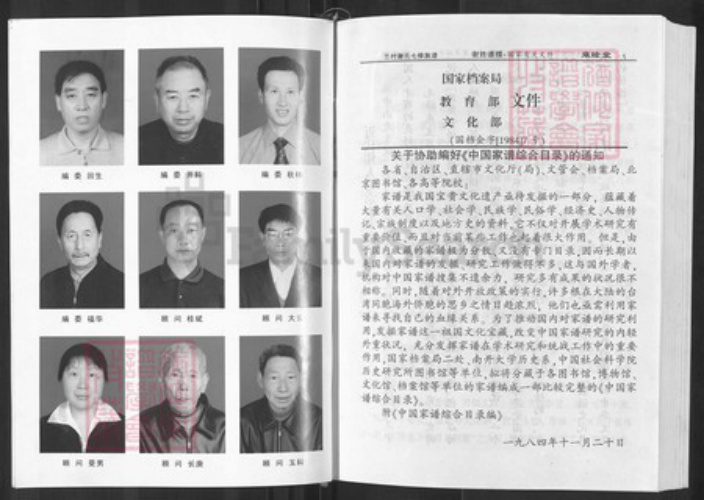 编 委 田生
编 委
编 委
编 委 福华
顾 问 桂斌
顾 问
顾 问 曼男
顾 问 长庚
顾 问 玉科
国家档案局
教 育 部 文件
文 化 部
(国档会字[1984]7号)
关于协助编好《中国家谱综合目录》的通知
各省、自治区、直辖市文化厅(局)、文管会、档案局、北
京图书馆、各高等院校:
家谱是我国宝贵文化遗产亟待发掘的一部分，蕴藏着
大量有关人口学、社会学、民族学、民俗学、经济史、人物传
记、宗族制度以及地方史的资料，它不仅对开展学术研究有
重要价值，而且对当前某些工作也起着很大作用。但是，由
于国内收藏的家谱极为分散，又没有专门目录，因而长期以
来国内对家谱的发掘、研究工作做得不多，这与国外学者、
机构对中国家谱搜集不遗余力、研究多有成果的状况很不
相称。同时，随着对外开放政策的实行，许多根在大陆的台
湾同胞海外侨胞的思乡之情日趋浓烈，他们也亟需利用家
谱来寻找自己的血缘关系。为了推动国内对家谱的研究利
用，发掘家谱这一祖国文化宝藏，改变中国家谱研究的内轻
外重状况，充分发挥家谱在学术研究和统战工作中的重要
作用，国家档案局二处、南开大学历史系、中国社会科学院
历史研究所图书馆等单位，拟将分藏于各图书馆、博物馆、
文化馆、档案馆等单位的家谱编成一部比较完整的《中国家
谱综合目录》。
附《中国家谱综合目录编》
一九八四年十一月二十日